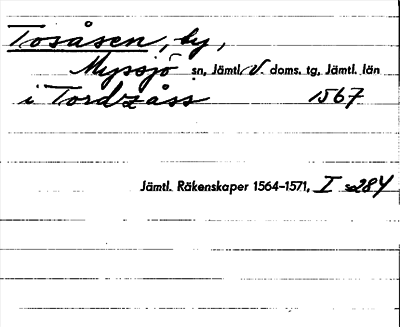 Tosåsen, by,
Myssjö sn, Jämtl. V. doms. tg, Jämtl. län
i Tordzåss 1567
Jämtl. Räkenskaper 1564–1571, I s 284